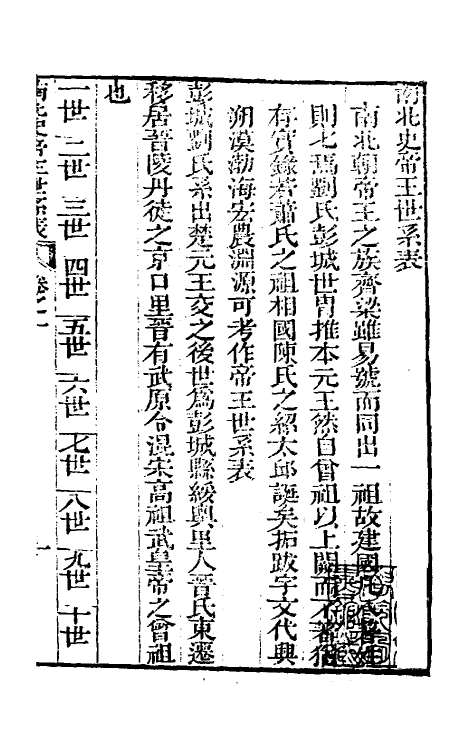 南北史帝王世系表
南北朝帝王之族齊梁雖易號而同出一祖故建國
則七焉劉氏彭城世胄推本元王然自曾祖以上闕而不著猶
有實錄若蕭氏之祖相國陳氏之紹太邱誕矣拓跋宇文代興
朔漠勃海宏農淵源可考作帝王世系表
彭城劉氏系出楚元王交之後世爲彭城縣綏輿里人晉氏東遷
移居晉陵丹徒之京口里晉有武原令混宋高祖武皇帝之曾祖
也
一世 二世 三世 四世 五世 六世 七世 八世 九世 十世
南北史帝王世系表 卷之一 一